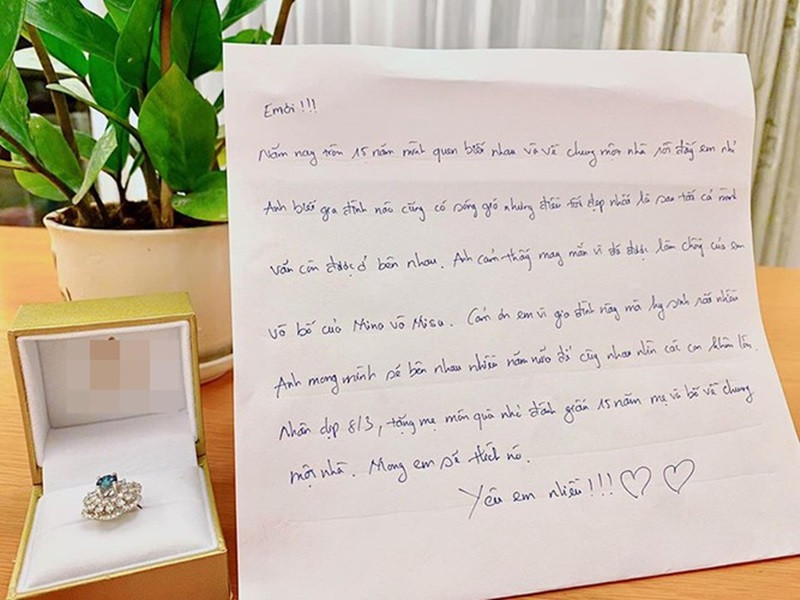 Em ơi !!!
Năm nay tròn 15 năm mình quen biết nhau và về chung một nhà rồi đấy em nhỉ
Anh biết gia đình nào cũng có sóng gió nhưng điều tốt đẹp nhất là sau tất cả mình
vẫn còn được ở bên nhau. Anh cảm thấy may mắn vì đã được làm chồng của em
và bố của Mina và Misa. Cảm ơn em vì gia đình này mà hy sinh rất nhiều
Anh mong mình sẽ bên nhau nhiều năm nữa để cùng nhau nhìn các con khôn lớn.
Nhân dịp 8/3, tặng mẹ món quà nhỏ đánh dấu 15 năm mẹ và bố về chung
một nhà. Mong em sẽ thích nó.
Yêu em nhiều !!! ♡ ♡